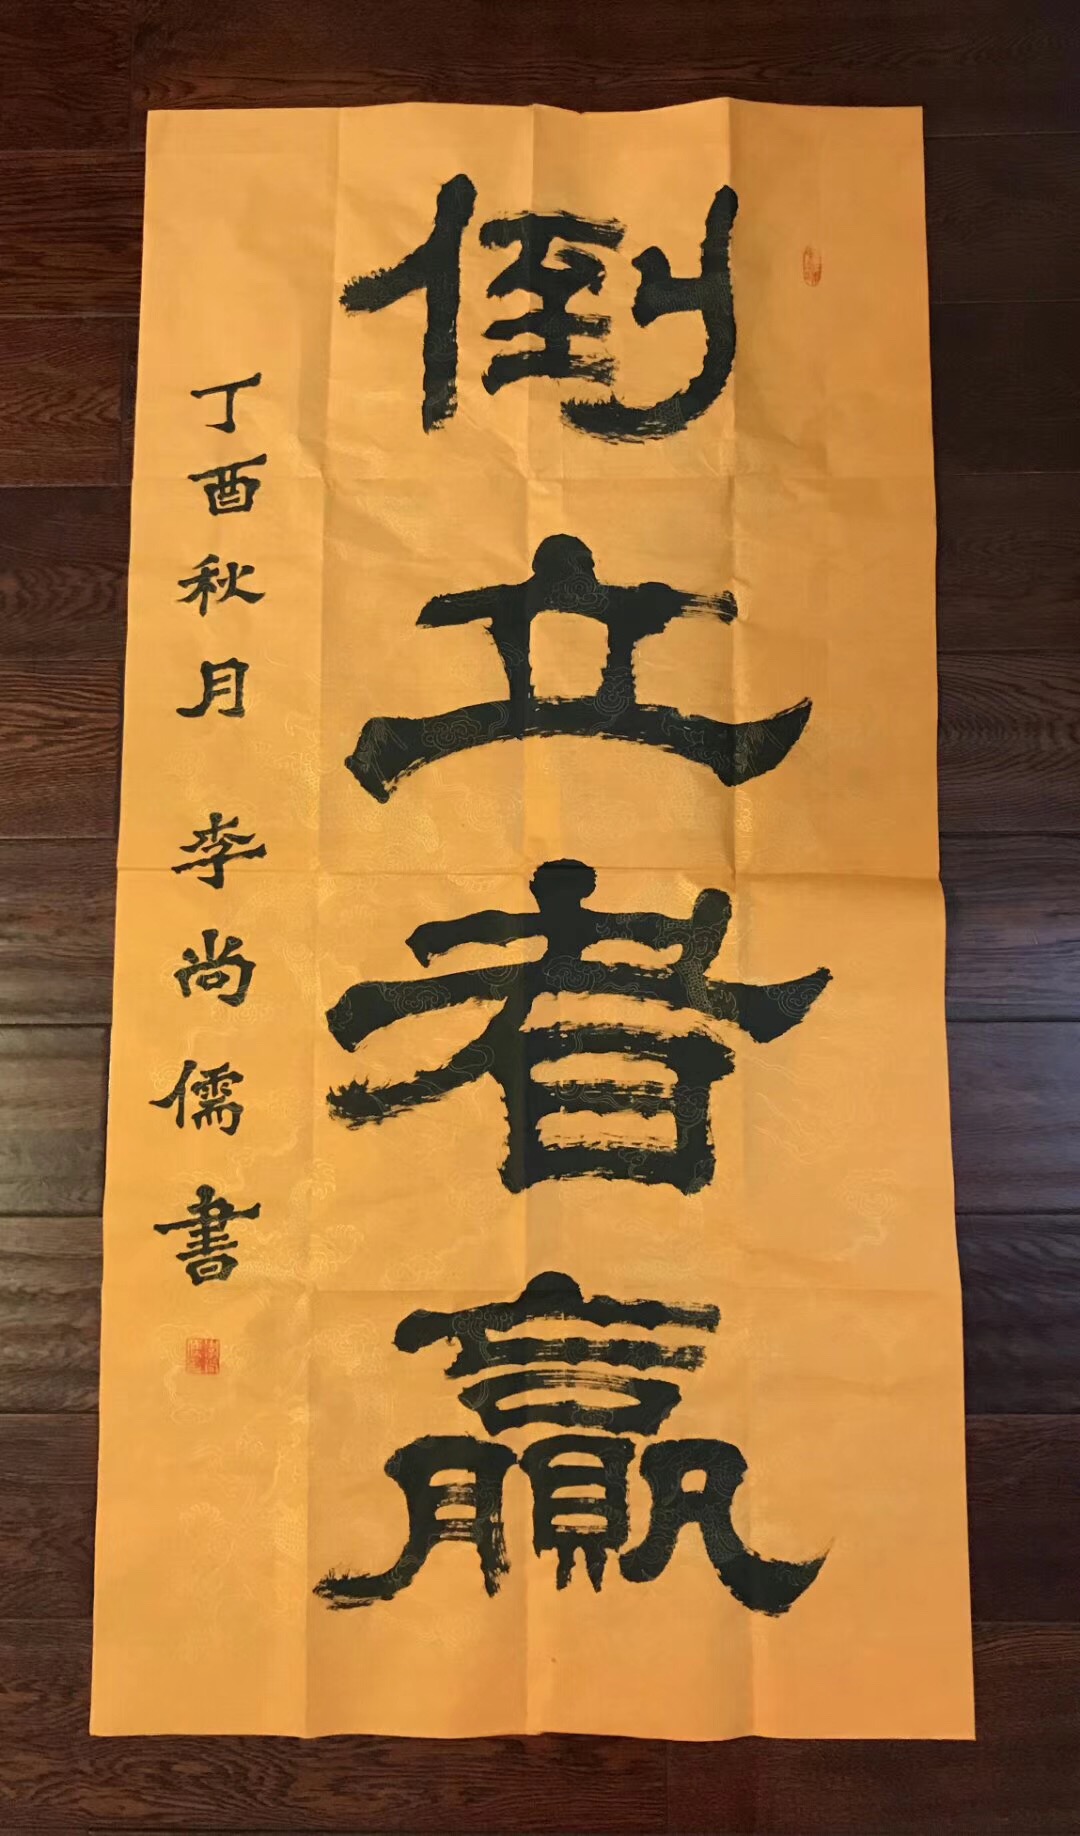 倒立者赢
丁酉秋月 李尚儒書